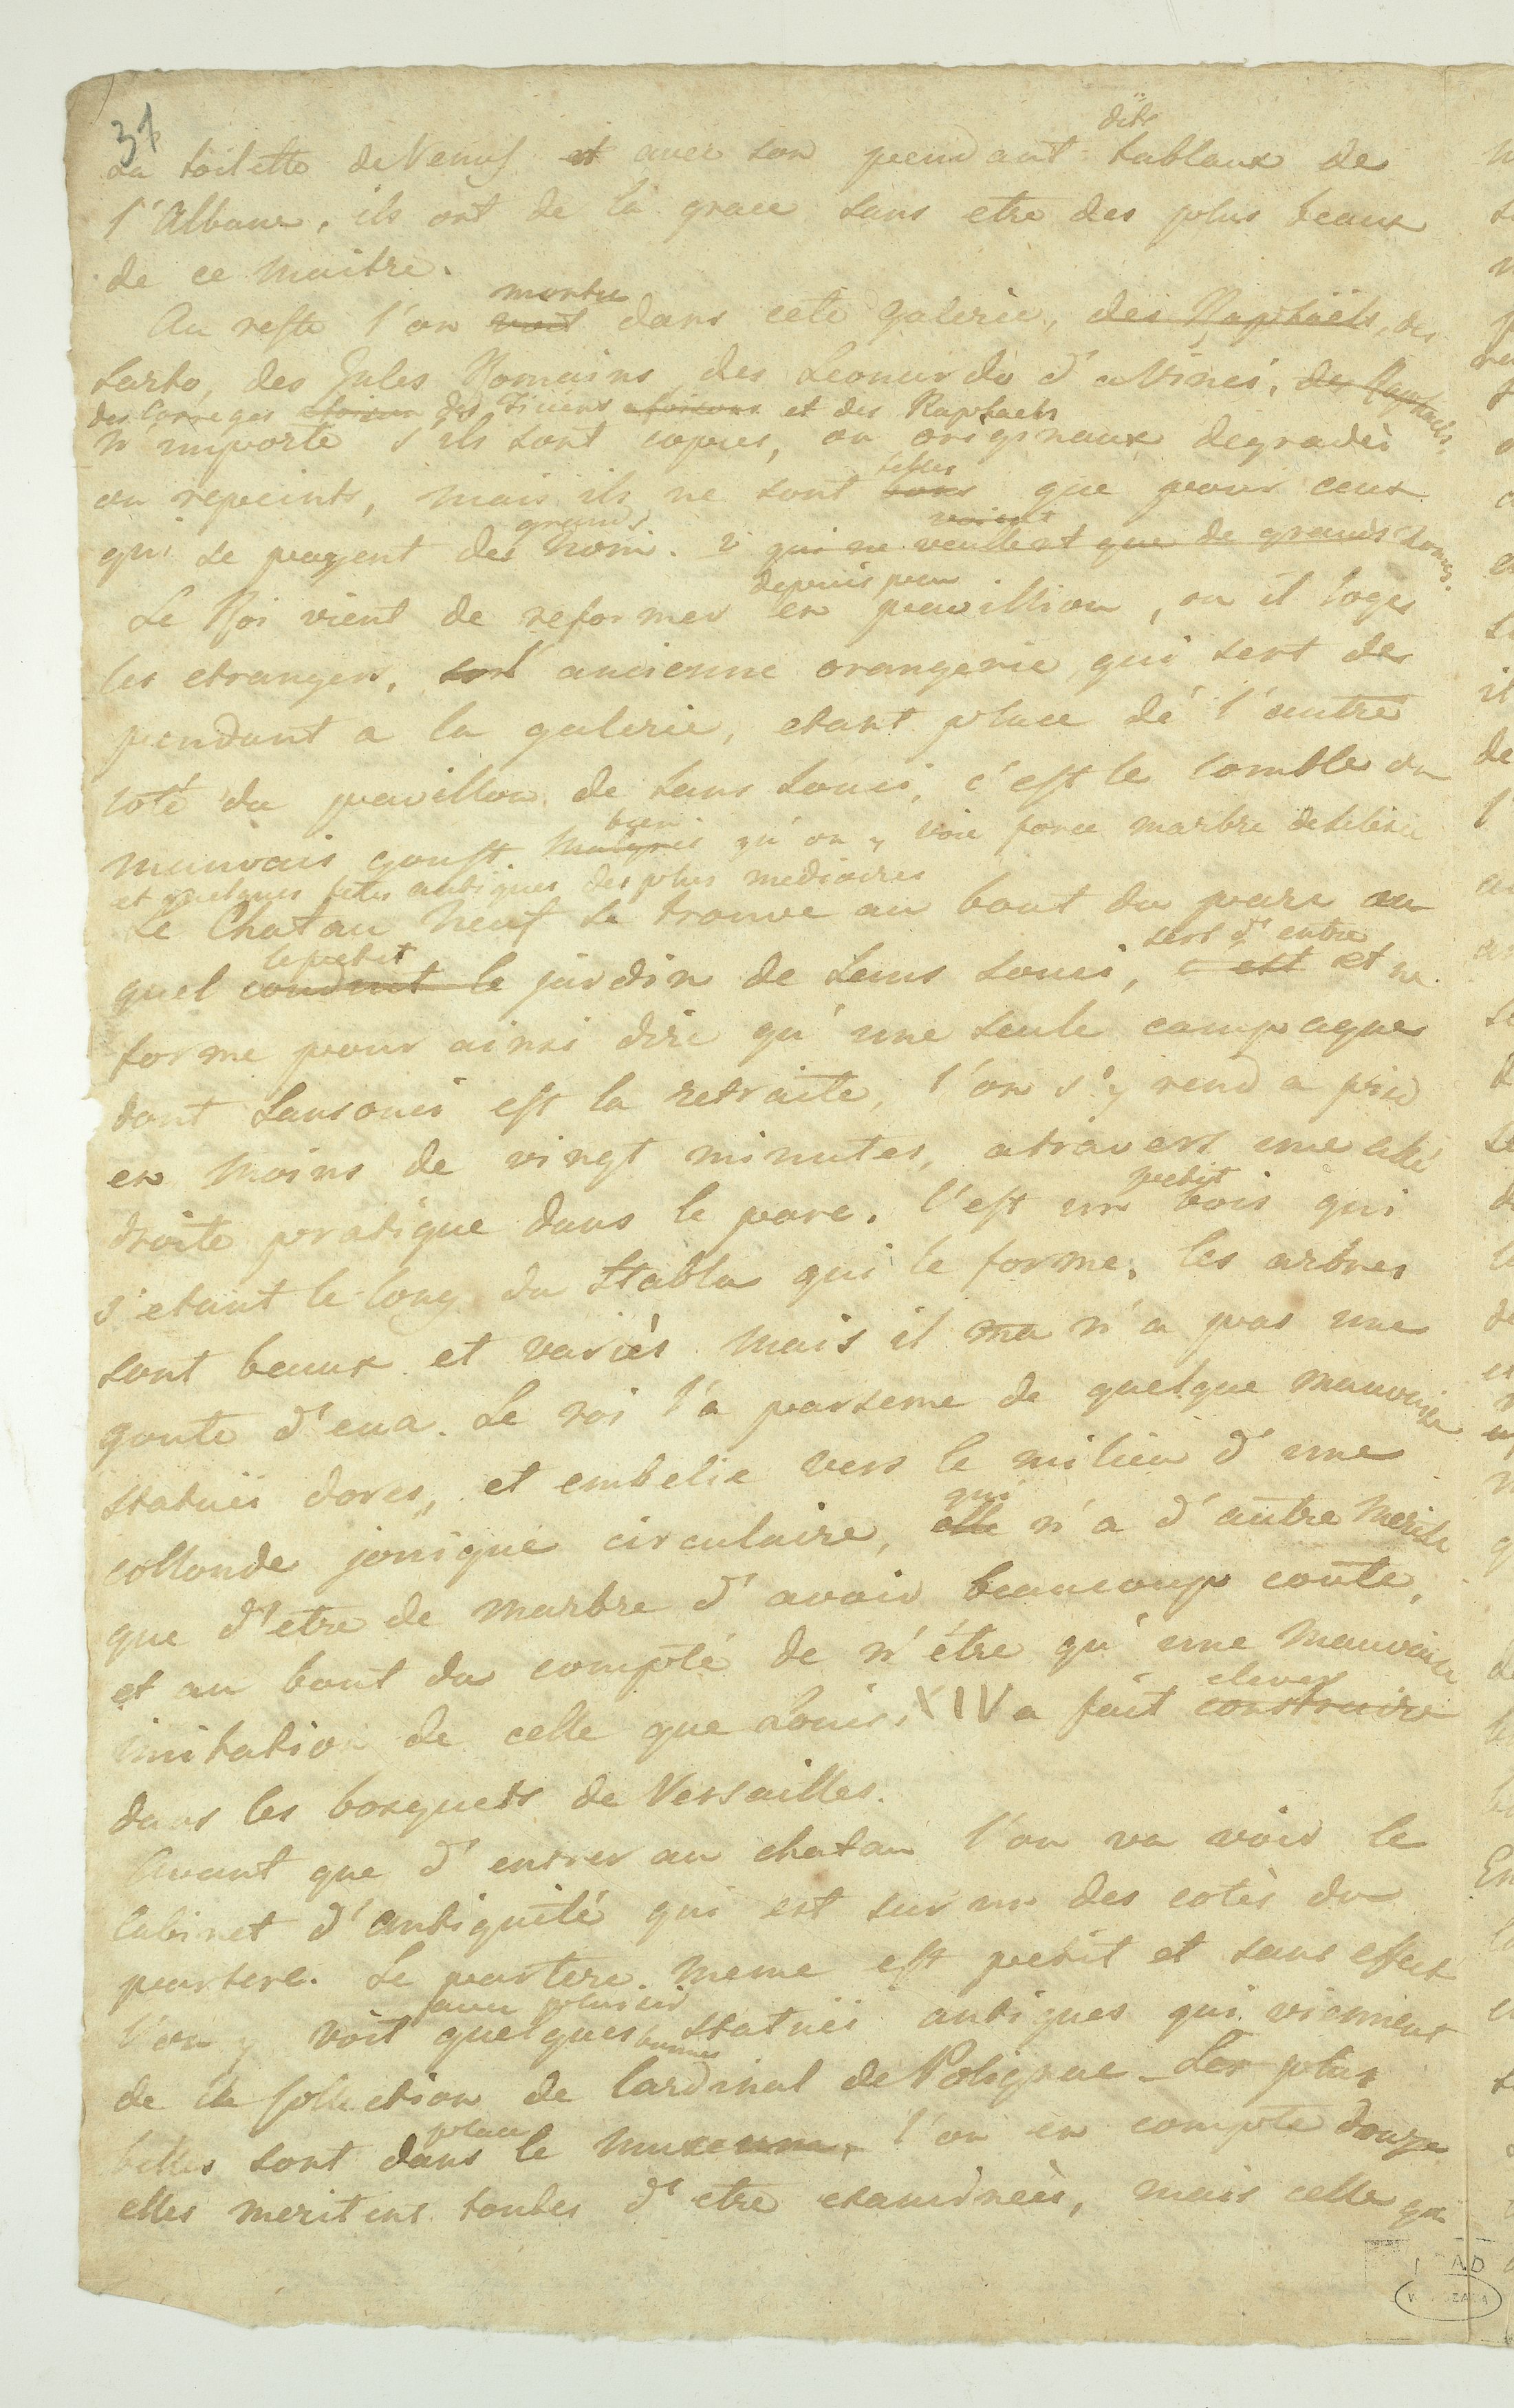 37
dits
La toilette de Venus et avec son pendant tablaux de
l'Albane, ils ont de la grace sans etre des plus beaux
de ce maitre.
montre
Au reste l'on voit dans cete galerie, des Raphaëls, des
Sarto, des Jules Romains, des Leonardo d'aVinci, des Raphaels,
des Correges des Ticiens et des Raphaels
n'importe s'ils sont copies, ou originaux degradés
belles
ou repeints, mais ils ne sont bons que pour ceux
grands voient
qui se payent des nom. qui ne veullent que de grands noms.
depuis peu
Le Roi vient de reformer en pavillion, ou il loge
les etrangers, son ancienne orangerie qui sert de
pendant a la galerie, etant place de l'autre
coté du pavillon de Sans Souci, c'est le comble du
bien
mauvais goust. Malgres qu'on y voie force marbre de Silesie
et quelques tetes antiques des plus mediocres
Le Chatau neuf se trouve au bout du parc au
le petit sert d'entre
quel conduit le jardin de Sans Souci, c'est et ne
forme pour ainsi dire qu'une seule campagne
dont Sansouci est la retraite, l'on s'y rend a pied
en moins de vingt minutes, atravers une alé
petit
droite pratique dans le parc. C'est un bois qui
s'etant le long du Stabla qui le forme, les arbres
sont beaux et variés mais il ma n'a pas une
goute d'eua. Le roi l'a parseme de quelque mauvaise
statuës dores, et embelie vers le milieu d'une
qui
collonde jonique circulaire, elle n'a d'autre merite
que d'etre de marbre d'avoir beaucoup couté,
et au bout du compte de n'être qu'une mauvaise
elever
imitation de celle que Louis XIV a fait construire
dans les bosquets de Versailles.
Avant que d'entrer au chatau l'on va voir le
Cabinet d'antiquité qui est sur un des cotés du
partere. Le partere meme est petit et sans effect
avec plaisir
l'on y voit quelques bonnes statuës antiques qui viennent
de la collection de Cardinal de Polignac. Les plus
place
belles sont dans le museum, l'on en compte douze
elles meritent toutes d'etre examinées, mais celle qu